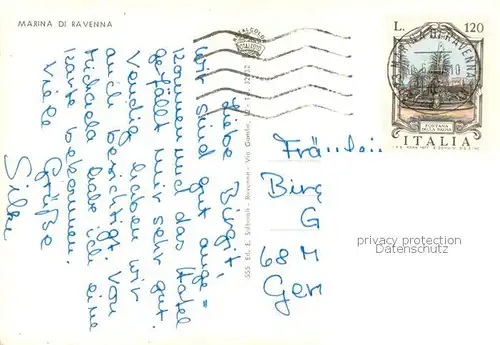 MARINA DI RAVENNA
Liebe Birgit,
wir sind gut ange=
kommen und das Hotel
gefällt mir sehr gut.
Venedig haben wir
auch besichtigt. Von
Michaela habe ich eine
Karte bekommen.
Viele Grüße
Silke
L. 120
MARINA DI RAVENNA
FONTANA
ITALIA
Fräulein
Birg
G
68 M
Ger
privacy protection
Datenschutz